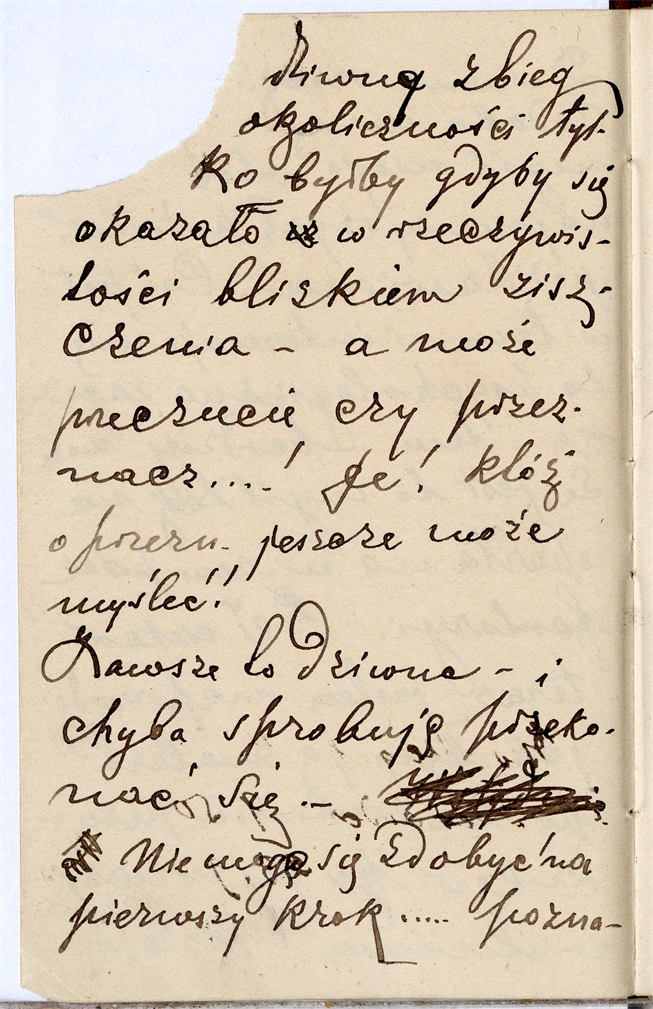 dziwną zbieg
okoliczności tyl-
ko byłby gdyby się
okazało w rzeczywis-
tości bliskiem zisz-
czenia – a może
przeczucie czy przez-
nacz....! Je! któż
o przezn. jeszcze może
myśleć!!
Zawsze to dziwne – i
chyba sprobuję przeko-
nać się. –
Nie mogę się zdobyć na
pierwszy krok ..... pozna-